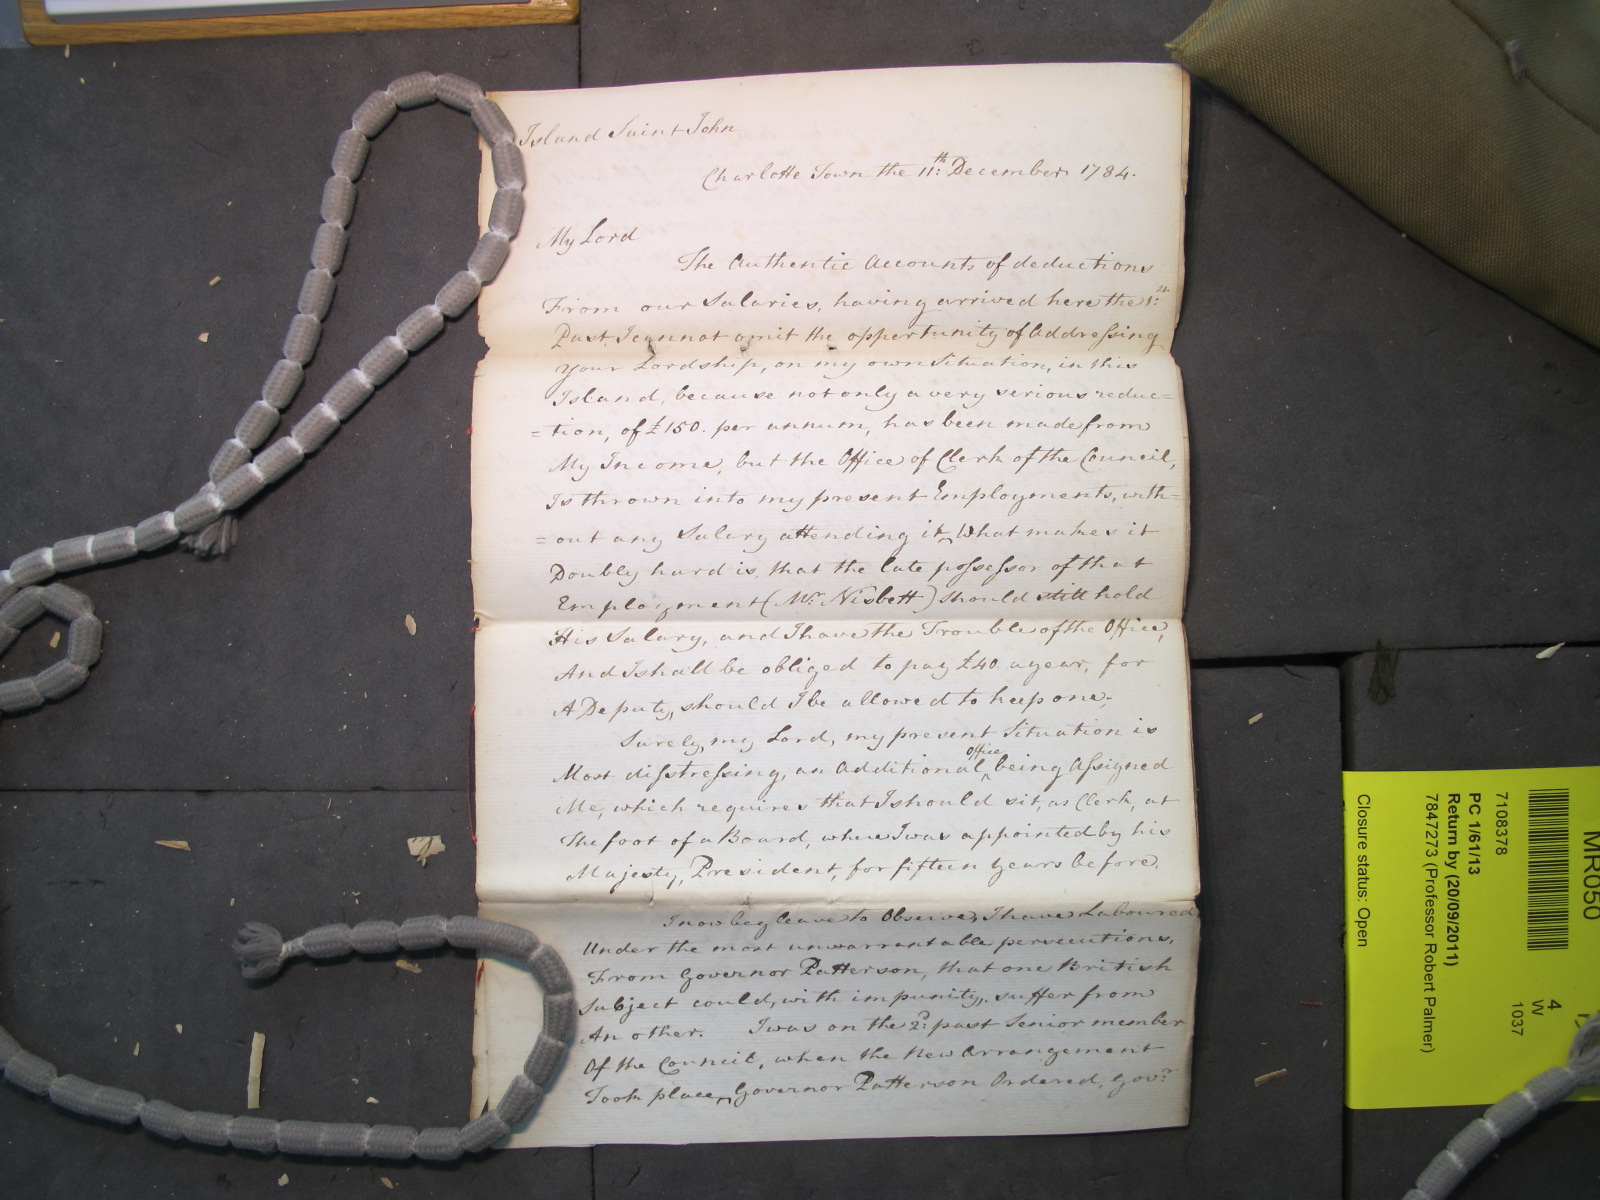 Island Saint John
Charlotte Town the 11th: December 1784.
My Lord
The Authentic Accounts of deductions
From our Salaries, having arrived here the 1:st
Past, I cannot omit the oppertunity of Addressing
Your Lordship, on my own Situation, in this
Island, because not only a very serious reduc=
=tion, of £150. per annum, has been made from
My Income, but the Office of Clerk of the Council,
Is thrown into my present Employments, with=
=out any Salary attending it, What makes it
Doubly hard is, that the late possessor of that
Employment (Mr. Nisbett) should still hold
His Salary, and I have the Trouble of the Office,
And I shall be obliged to pay £40 a year, for
A Deputy, should I be allowed to keep one.
Surely, my Lord, my present Situation is
Most disstressing, an Additional office being Assigned
Me, which requires that I should sit, as Clerk, at
The foot of a Board, where I was appointed by his
Majesty, President, for fifteen Years before.
I now beg leave to Observe, I have Laboured
Under the most unwarrantable persecutions,
From Governor Patterson, that one British
Subject could, with impunity, suffer from
An other. I was on the 2d: past Senior member
Of the Council, when the New Arrangement
Took place, Governor Patterson Ordered, Govr:
MR050
4
W
1037
7108378
PC 1/61/13
Return by (20/09/2011)
7847273 (Professor Robert Palmer)
Closure status: Open